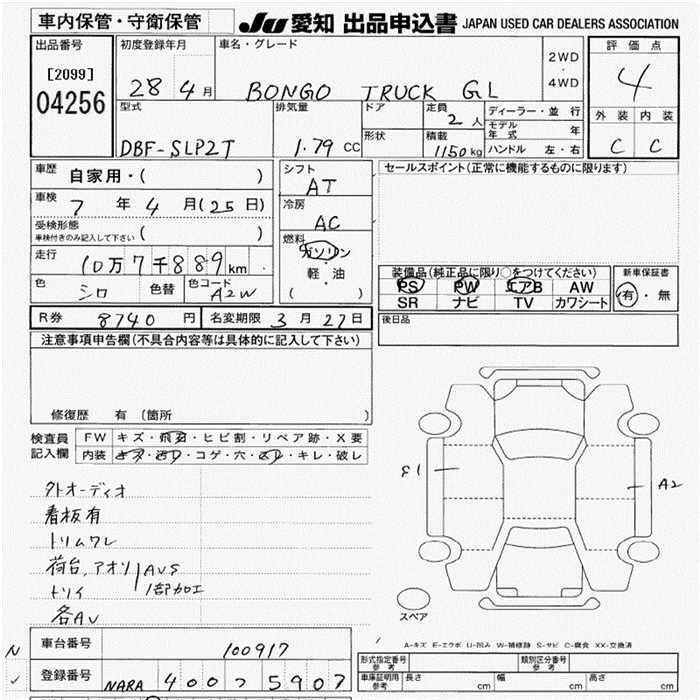 車内保管・守衛保管
JU 愛知 出品申込書 JAPAN USED CAR DEALERS ASSOCIATION
出品番号
[2099]
04256
初度登録年月
28 4月
車名・グレード
BONGO TRUCK GL
2WD
・
4WD
評価点
4
外装 内装
C C
型式
DBF-SLP2T
排気量
1.79 CC
ドア
形状
定員
2 人
積載
1150 kg
ディーラー・並行
モデル年式 年
ハンドル 左・右
車歴
自家用・( )
車検
7 年 4 月(25日)
受検形態
車検付きのみ記入して下さい ( )
走行
10万7千889km
色
シロ
色替
色コード
A2W
シフト
AT
冷房
AC
燃料
ガソリン
・
軽・油
( )
セールスポイント(正常に機能するものに限ります)
装備品(純正品に限り○をつけてください)
PS PW エアB AW
SR ナビ TV カワシート
新車保証書
有・無
R券 8740 円
名変期限 3月27日
後日品
注意事項申告欄(不具合内容等は具体的に記入して下さい)
修復歴 有 (箇所 )
検査員
記入欄
FW キズ・飛石・ヒビ割・リペア跡・X要
内装 キズ・汚れ・コゲ・穴・スレ・キレ・破レ
外オーディオ
看板有
トリムワレ
荷台、アオリ
トリイ
AUS
1部加工
各AU
E1
A2
スペア
A-キズ E-エクボ U-凹み W-補修跡 S-サビ C-腐食 XX-交換済
N
車台番号
100917
✓
登録番号
NARA 400 つ 5907
形式指定番号
参考
類別区分番号
参考
車庫証明用
参考
長さ cm
幅 cm
高さ cm